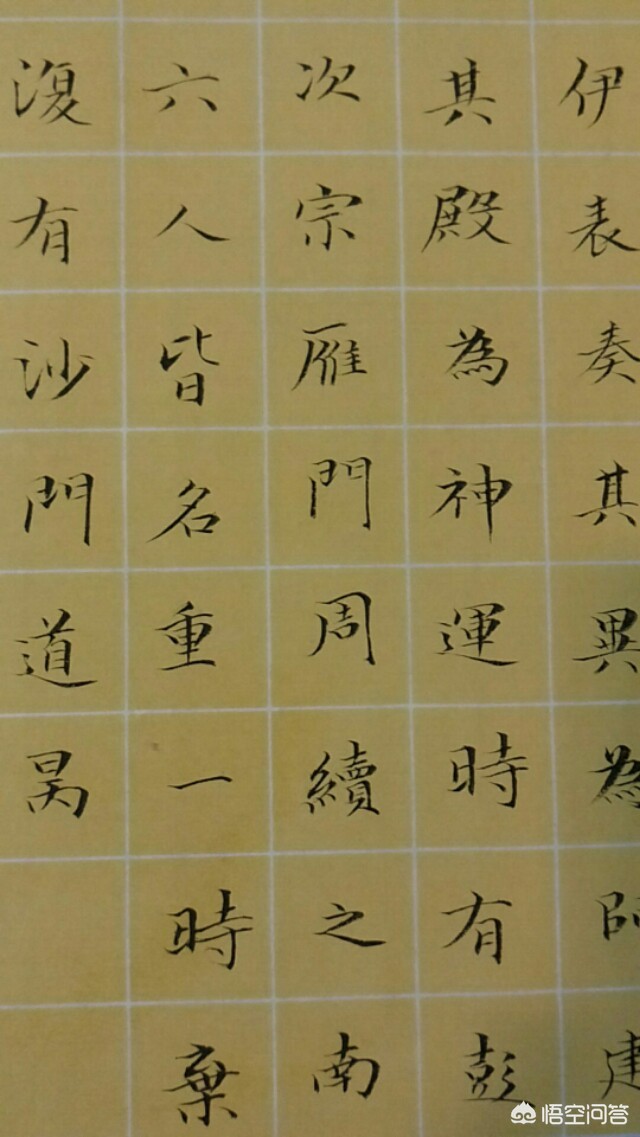 伊表奏其異為師建
其殿為神運時有彭
次宗雁門周續之南
六人皆名重一時棄
復有沙門道昺
悟空问答